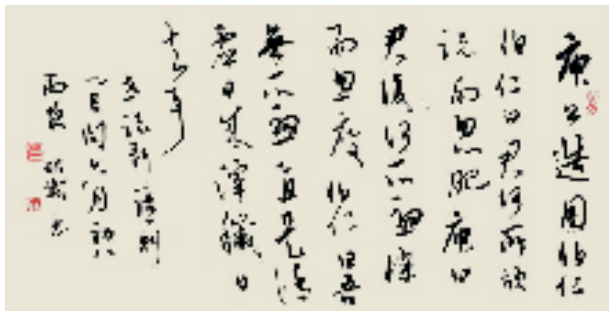 庾公造周伯仁
伯仁曰君何所欣
說而忽肥庾曰
君復何所憂慘
而忽瘦伯仁曰吾
無所憂直是清
虛日來滓穢日
去耳
世說新語一則
六月
雨窗